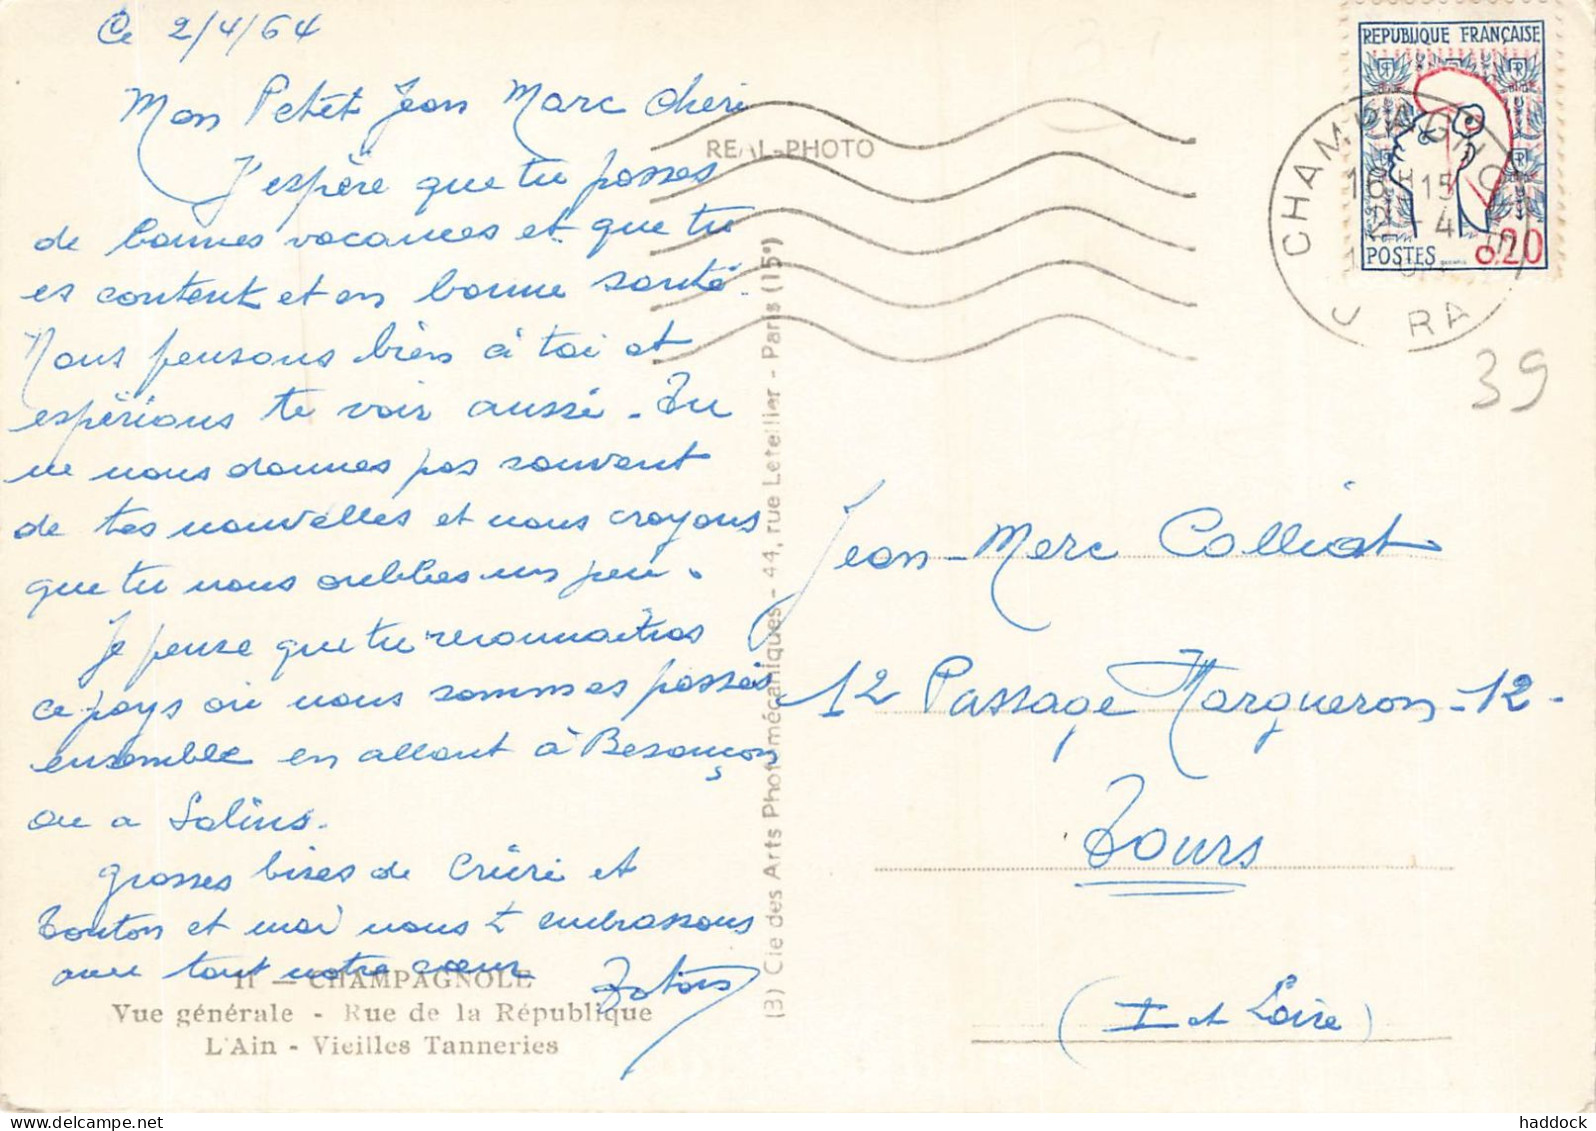 Ce 2/4/64
Mon Petit Jean Marc cheri
J'espère que tu passes
de bonnes vacances et que tu
es content et en bonne santé.
Nous pensons bien à toi et
espérions te voir aussi. Tu
ne nous donnes pas souvent
de tes nouvelles et nous croyons
que tu nous oublies un peu.
Je pense que tu reconnaitras
ce pays où nous sommes passés
ensemble en allant à Besançon
ou a Salins.
grosses bises de et
Tonton et moi nous t embrassons
avec tout notre coeur
11 — CHAMPAGNOLE
Vue générale - Rue de la République
L'Ain - Vieilles Tanneries
REAL-PHOTO
(B) Cie des Arts Photomécaniques - 44, rue Letellier - Paris (15e)
REPUBLIQUE FRANÇAISE
POSTES 0,20
CHAMPAGNOLE
16 H 15
2 - 4
JURA
39
Jean-Marc Colliot
12 Passage Margueron -12-
Tours
(I et Loire)
haddock